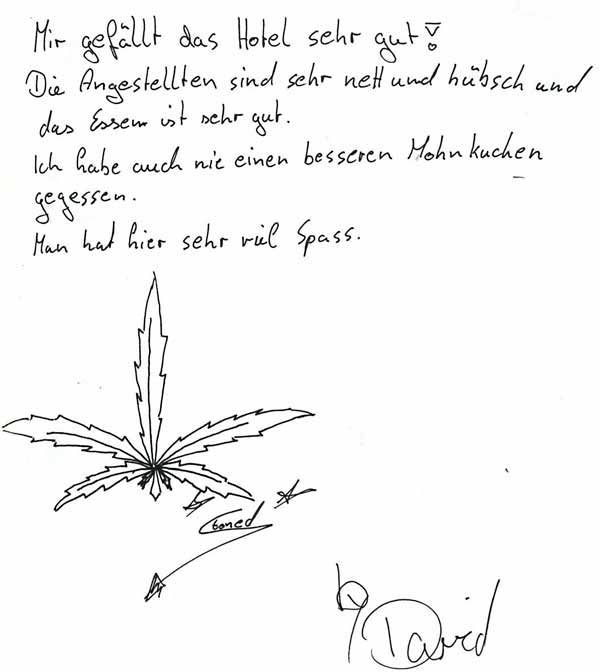 Mir gefällt das Hotel sehr gut!
Die Angestellten sind sehr nett und hübsch und
das Essen ist sehr gut.
Ich habe auch nie einen besseren Mohnkuchen
gegessen.
Man hat hier sehr viel Spass.
Stoned
by David